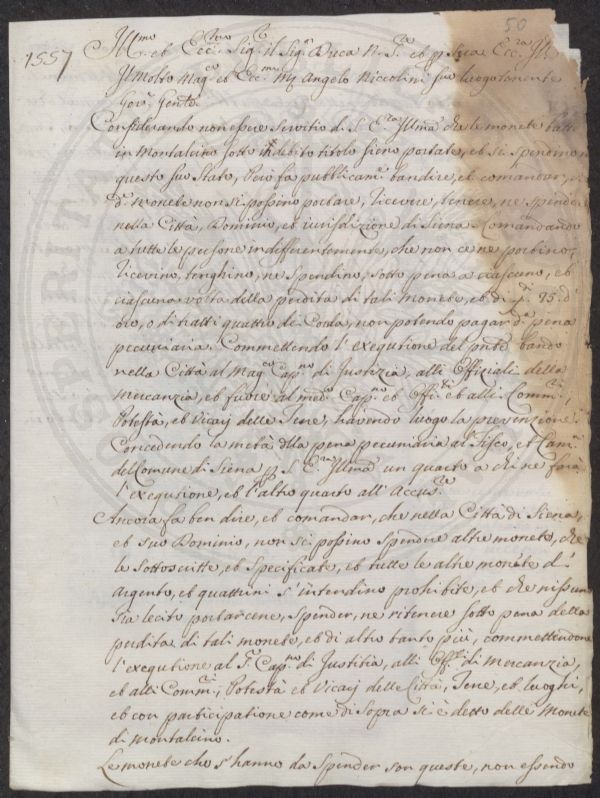 50
1557 Ill.mo et Ecc.mo Sig.r il Sig.r Duca N. S.re et p. Sua Ecc.za Ill.
Il Molto Mag.co et Ecc.mo M. Angelo Niccolini suo luogotenente
Gov.r Gen.le
Considerando non essere servitio di S. E.za Ill.ma che le monete batt
in Montalcino sotto indebito titolo sieno portate, et si spendino n
questo suo Stato, Però fa pubblicam.e bandire, et comandar, ch
d.e monete non si possino portare, ricevere, tenere, ne spender
nella Città, Dominio, et iurisditione di Siena Comandando
a tutte le persone indifferentemente, che non ce ne portino,
ricevino, tenghino, ne spendino, sotto pena a ciascuno, et
ciascuna volta della perdita di tali monete, et di 25 d'
oro, o di tratti quattro di Corda, non potendo pagar d.a pena
pecuniaria. Commettendo l'esegutione del pnte bando
nella Città al Mag.co Cap.no di Iustizia, alli Offitiali della
Mercanzia, et fuore al med.o Cap.no et Offi.li et alli Comm.ri,
Potestà, et Vicarij delle Terre, havendo luogo la prevenzione
Concedendo la metà dlla pena pecuniaria al Fisco, et Cam.
del Comune di Siena p. S. E.za Ill.ma un quarto a chi ne farà
l'esegusione, et l'altro quarto all'Accus.re
Ancora fa ben dire, et comandar, che nella Città di Siena,
et suo Dominio, non si possino spendere altre monete, che
le sottoscritte, et specificate, et tutte le altre monete d'
argento, et quattrini s'intendino prohibite, et che nissuno
sia lecito portarcene, spender, ne ritenere sotto pena della
perdita di tali monete, et di altro tanto più, commettendone
l'esegutione al S.r Cap.no di Iustitia, alli Off.li di Mercanzia,
et alli Comm.ri, Potestà et Vicarij delle Città, Terre, et luoghi,
et con participatione come di sopra si è detto delle Monete
di Montalcino.
Le monete che s'hanno da spender son queste, non essendo